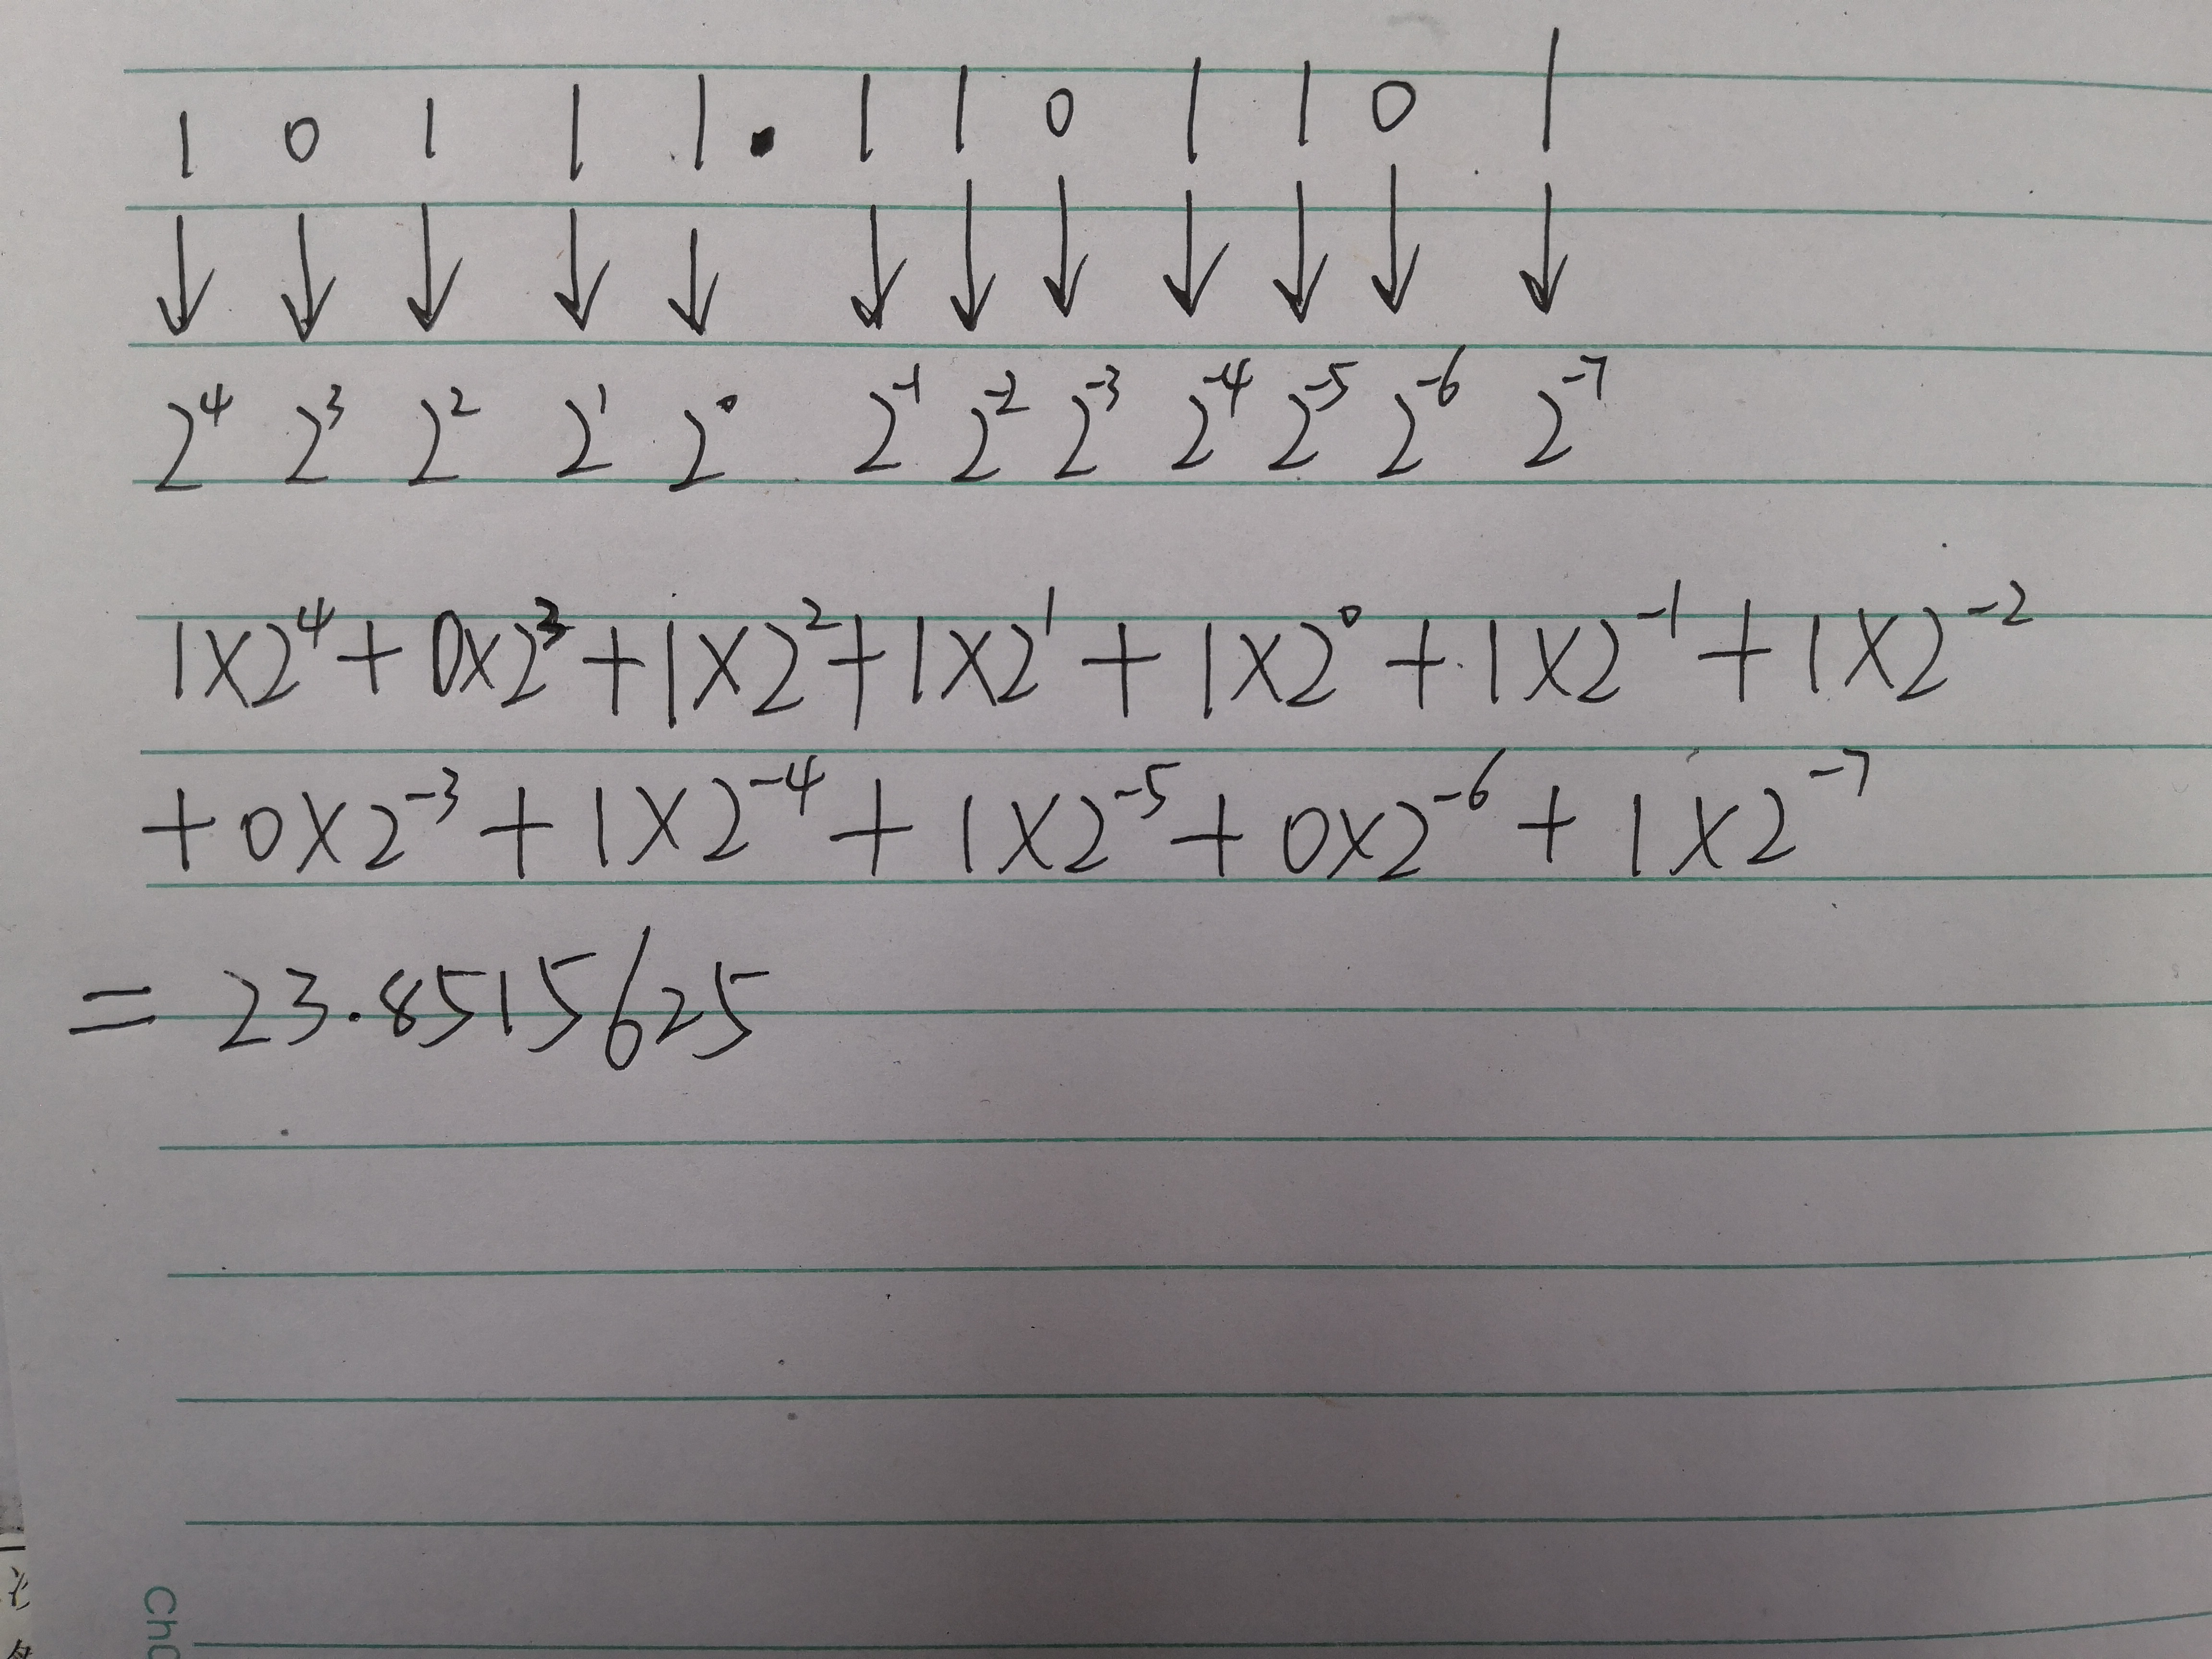 1 0 1 1 1 . 1 1 0 1 1 0 1
↓ ↓ ↓ ↓ ↓ ↓ ↓ ↓ ↓ ↓ ↓ ↓
2⁴ 2³ 2² 2¹ 2⁰ 2⁻¹ 2⁻² 2⁻³ 2⁻⁴ 2⁻⁵ 2⁻⁶ 2⁻⁷
1×2⁴ + 0×2³ + 1×2² + 1×2¹ + 1×2⁰ + 1×2⁻¹ + 1×2⁻²
+ 0×2⁻³ + 1×2⁻⁴ + 1×2⁻⁵ + 0×2⁻⁶ + 1×2⁻⁷
= 23.8515625